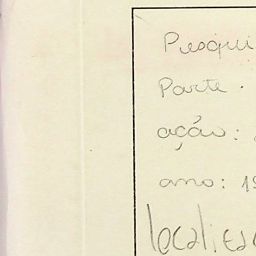 Pesqui
Parte.
ação:
ano: 19
localiza